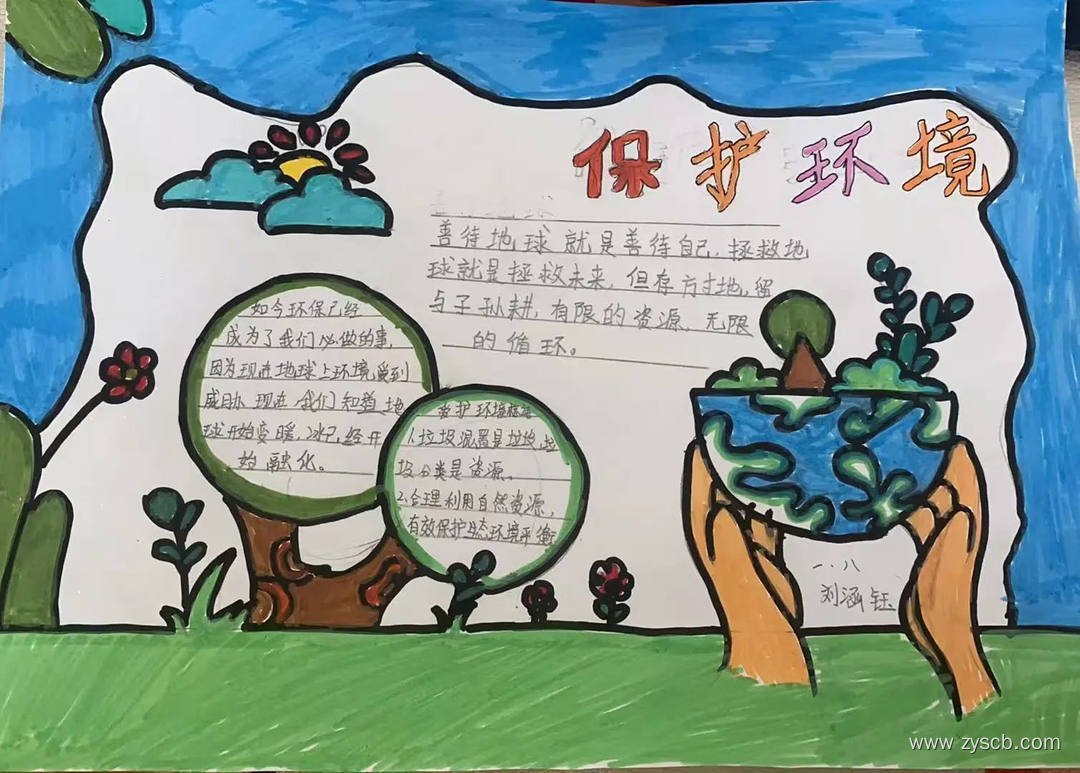 保护环境
善待地球就是善待自己,拯救地
球就是拯救未来,但存方寸地,留
与子孙耕,有限的资源、无限
的循环。
如今环保已经
成为了我们必做的事,
因为现在地球上环境受到
威胁,现在,我们知道地
球开始变暖,冰已经开
始融化。
爱护环境标语
1.垃圾混置是垃圾,垃
圾分类是资源。
2.合理利用自然资源,
有效保护生态环境平衡
一.八
刘涵钰
www.zyscb.com